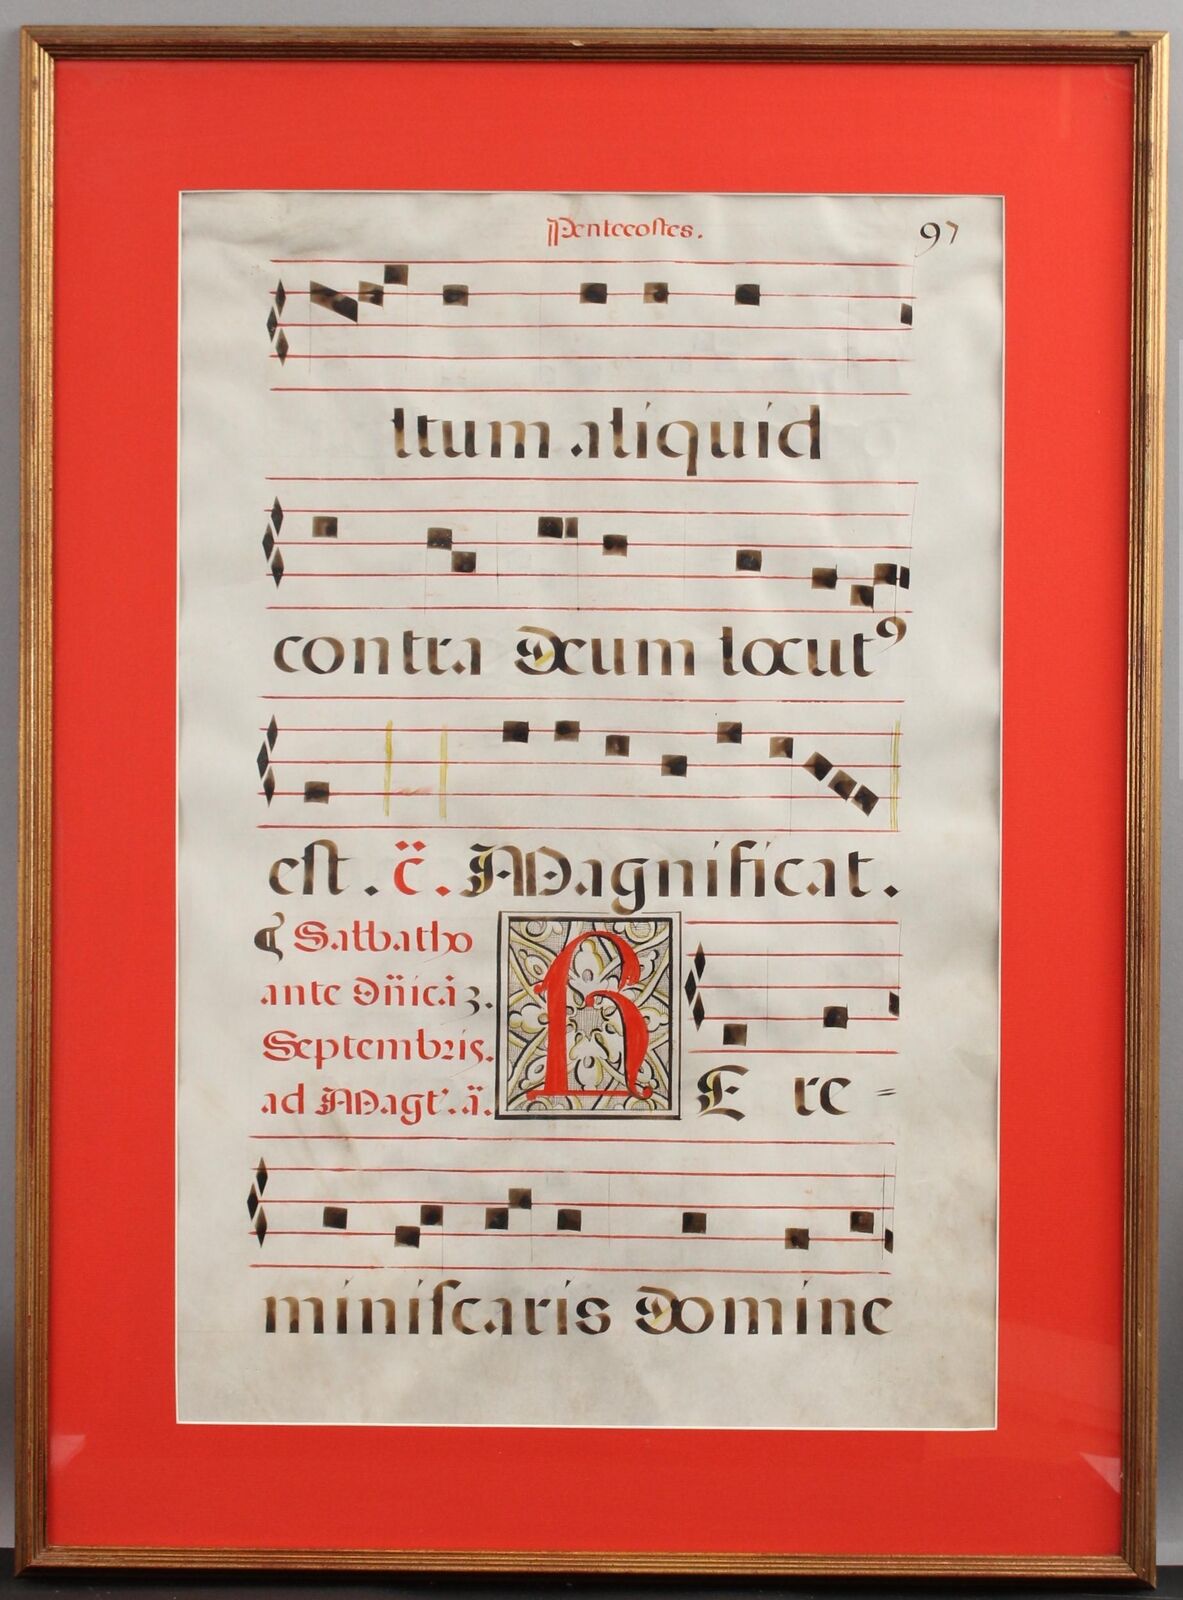 Pentecostes. 97
ltum aliquid
contra Deum locutꝰ
est . c̈ . Magnificat .
Sabbatho
ante Dñicā 3.
Septembris.
ad Magt'. ä.
RE re=
miniscaris Domine